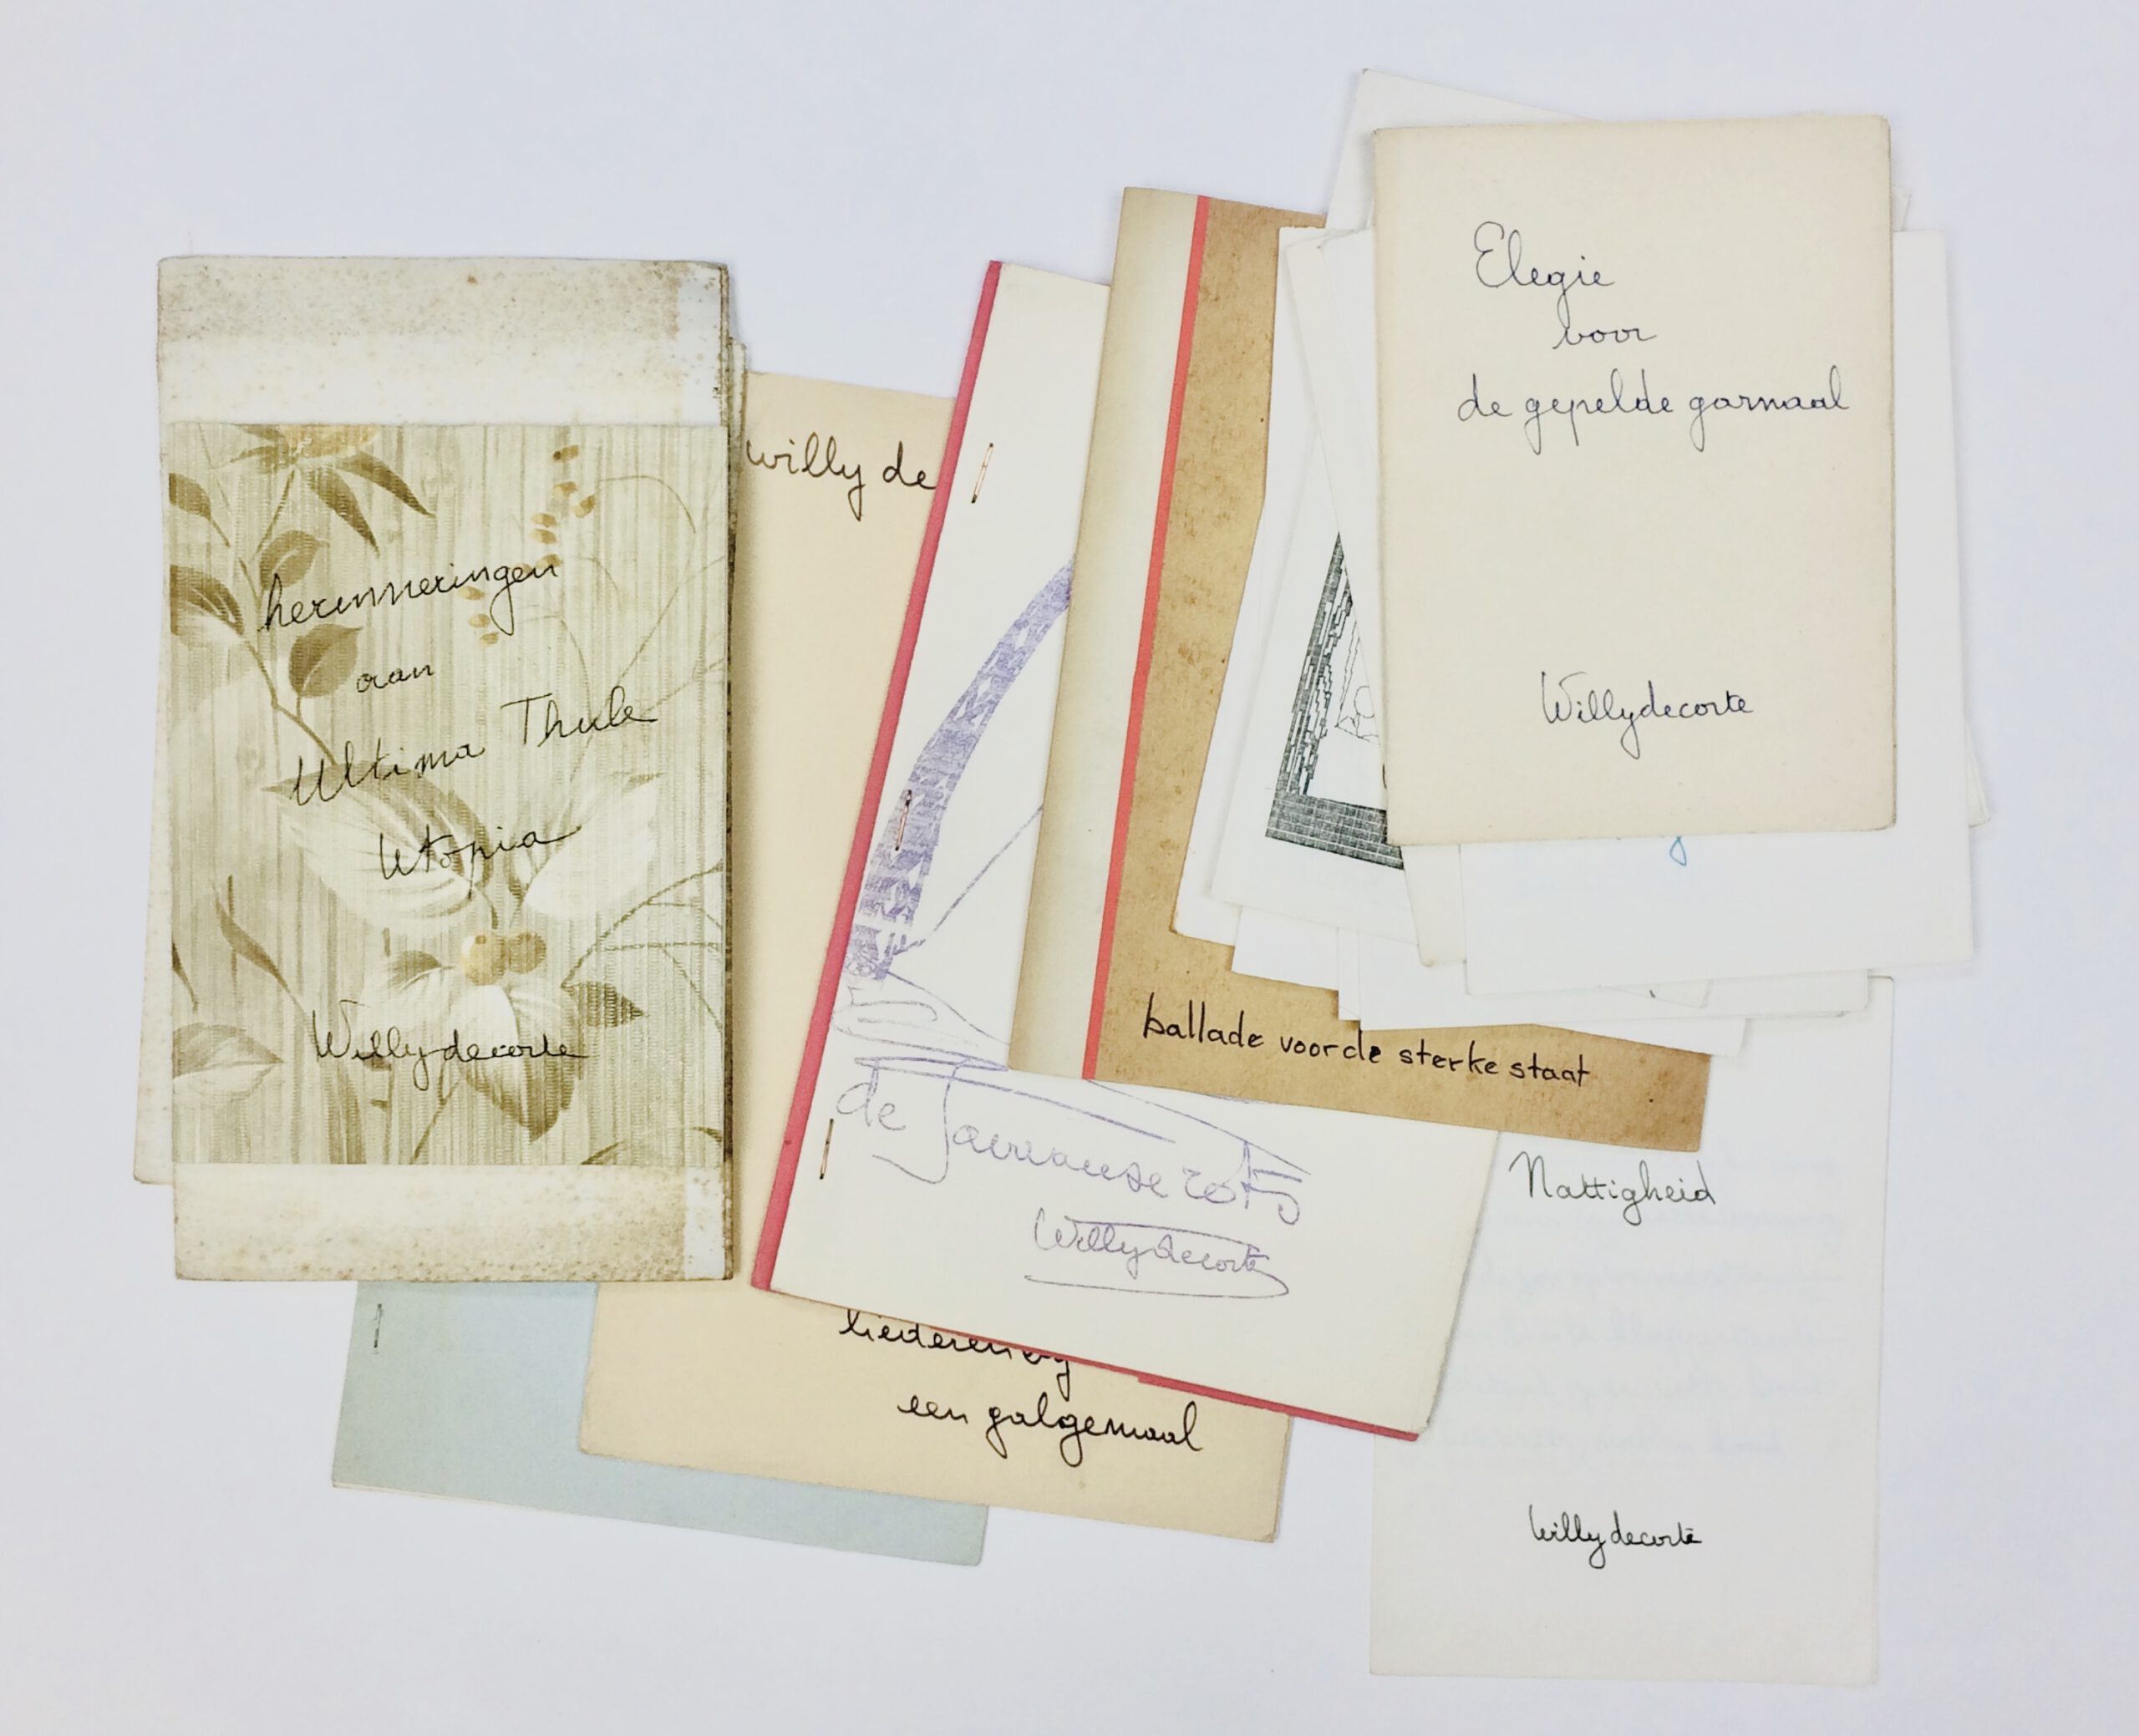 herinneringen
aan
Ultima Thule
Utopia
Willydecorte
willy de
liederen bij
een galgemaal
de
Willydecorte
ballade voor de sterke staat
Elegie
voor
de gepelde garnaal
Willydecorte
Nattigheid
willydecorte